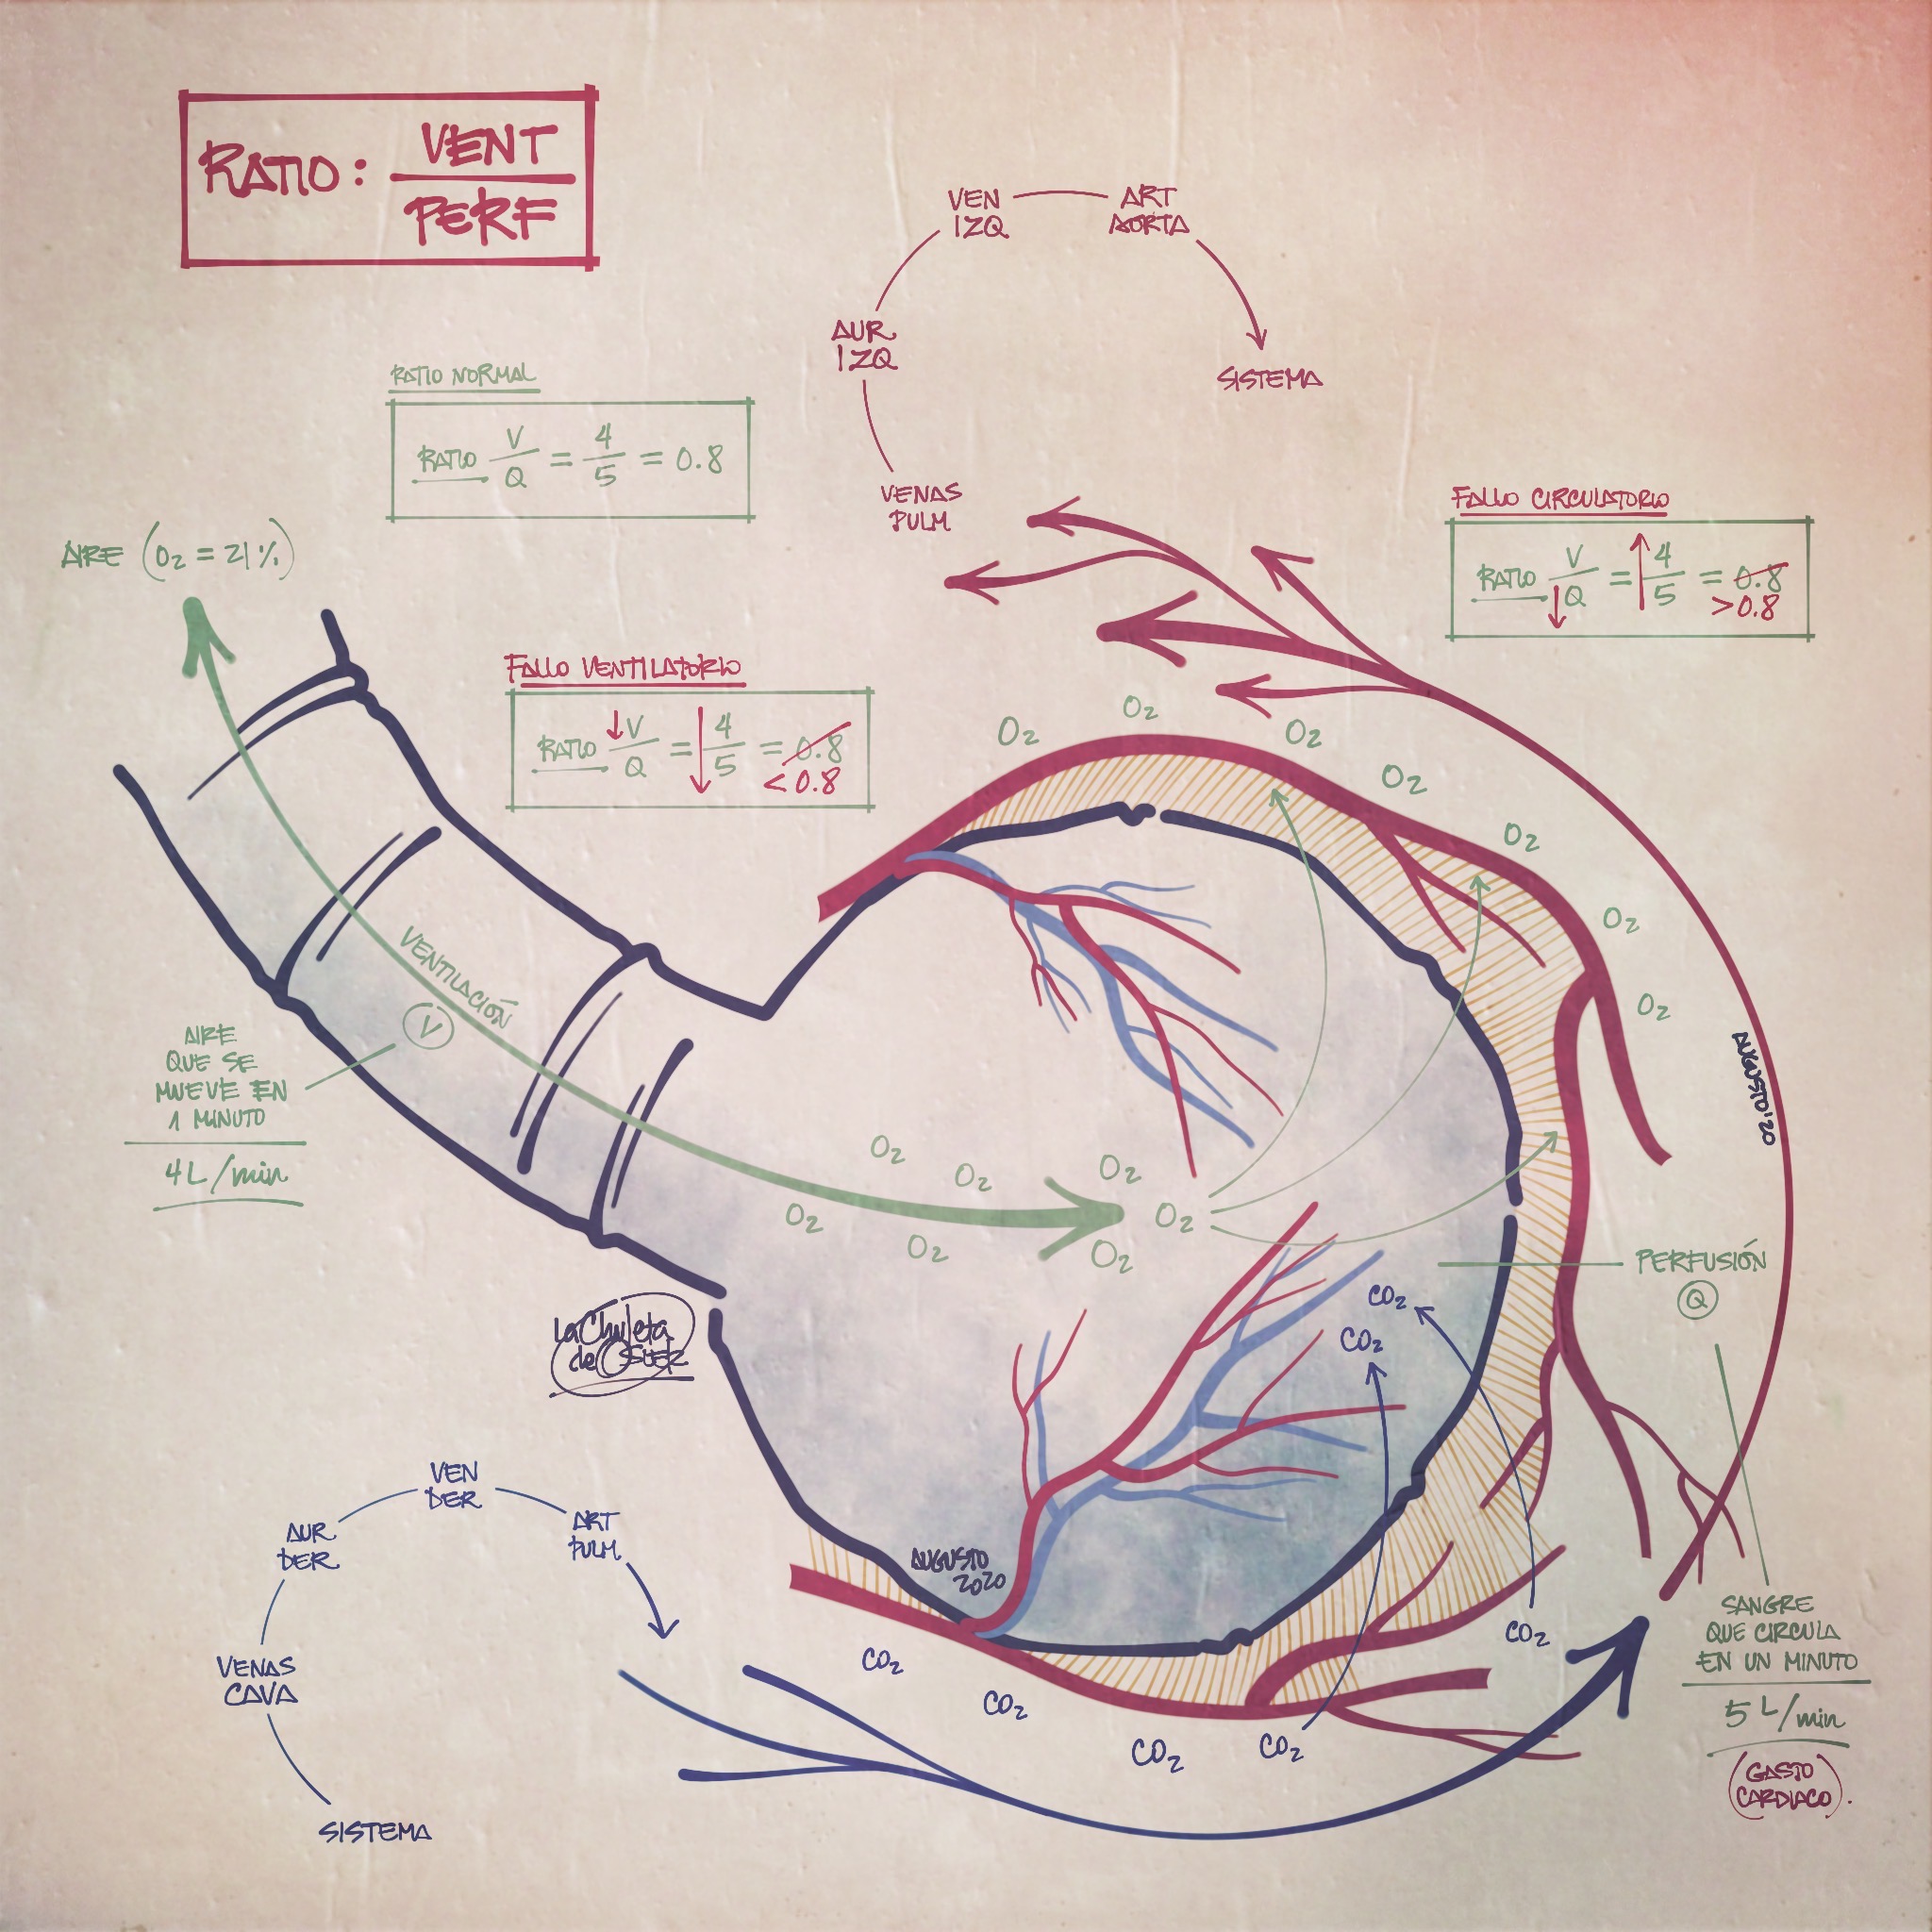 RATIO: VENT
PERF
VEN
IZQ
ART
AORTA
AUR
IZQ
SISTEMA
VENAS
PULM
RATIO NORMAL
RATIO V/Q = 4/5 = 0.8
AIRE (O₂ = 21%)
FALLO CIRCULATORIO
RATIO V/↓Q = ↑4/5 = 0.8
>0.8
FALLO VENTILATORIO
RATIO ↓V/Q = ↓4/5 = 0.8
<0.8
O₂
O₂
O₂
O₂
O₂
O₂
O₂
VENTILACIÓN
V
AIRE
QUE SE
MUEVE EN
1 MINUTO
4L/min
AUGUSTO'20
O₂
O₂
O₂
O₂
O₂
O₂
O₂
PERFUSIÓN
Q
CO₂
CO₂
La Chuleta
de OSLER
VEN
DER
AUR
DER
ART
PULM
VENAS
CAVA
SISTEMA
AUGUSTO
2020
CO₂
CO₂
CO₂
CO₂
CO₂
SANGRE
QUE CIRCULA
EN UN MINUTO
5 L/min
(GASTO
CARDIACO).